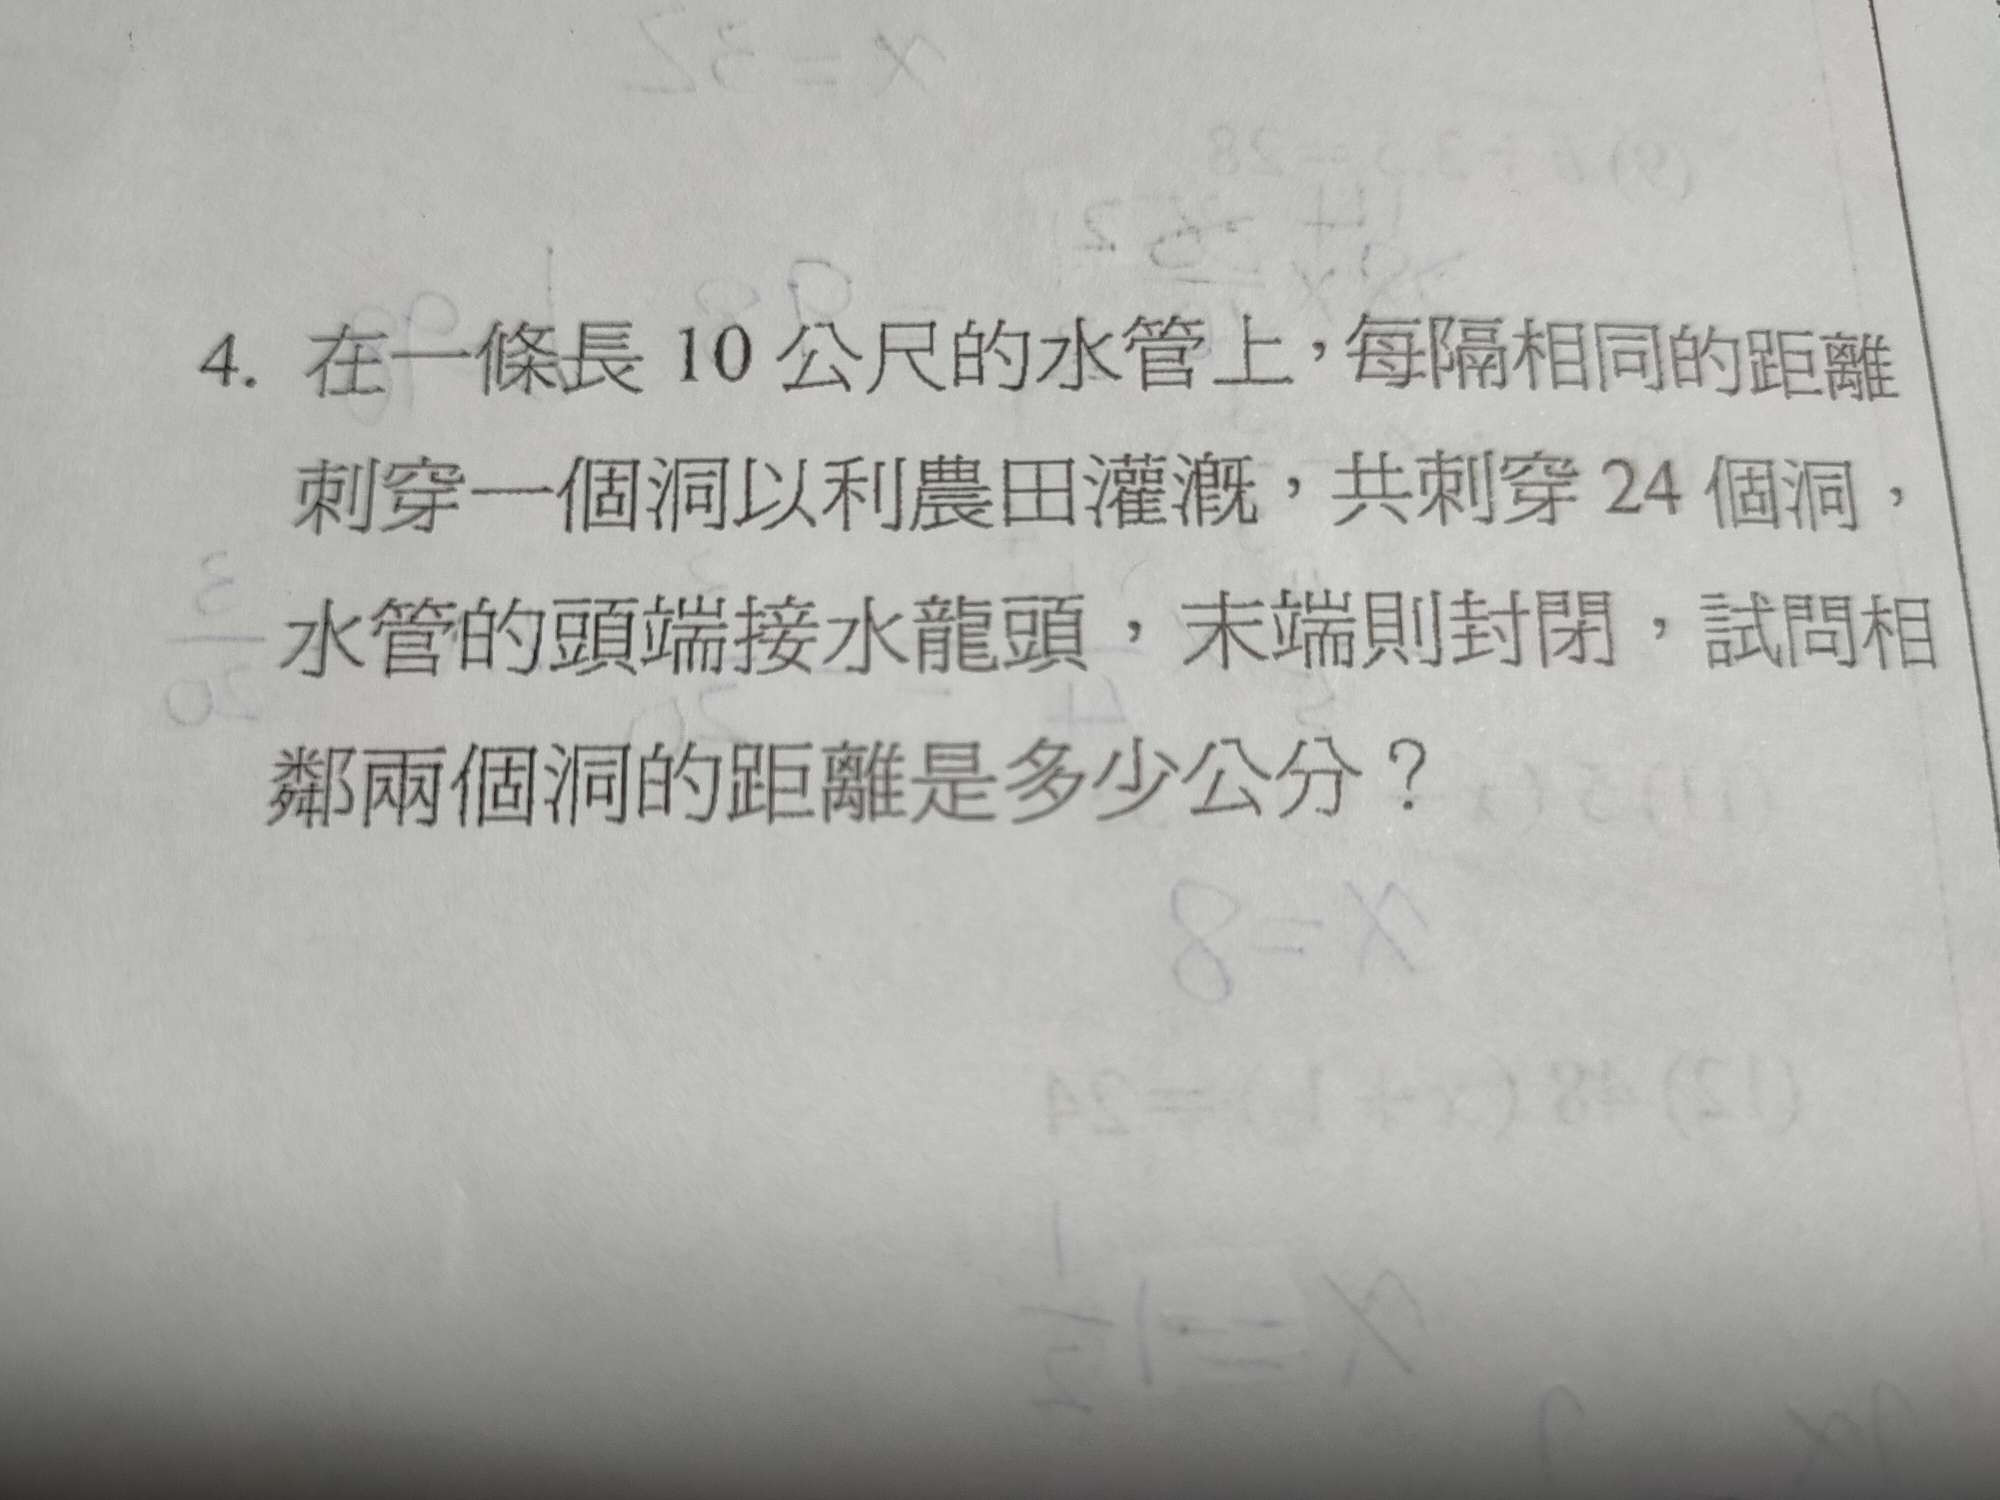 4. 在一條長 10 公尺的水管上，每隔相同的距離
刺穿一個洞以利農田灌溉，共刺穿 24 個洞，
水管的頭端接水龍頭，末端則封閉，試問相
鄰兩個洞的距離是多少公分？